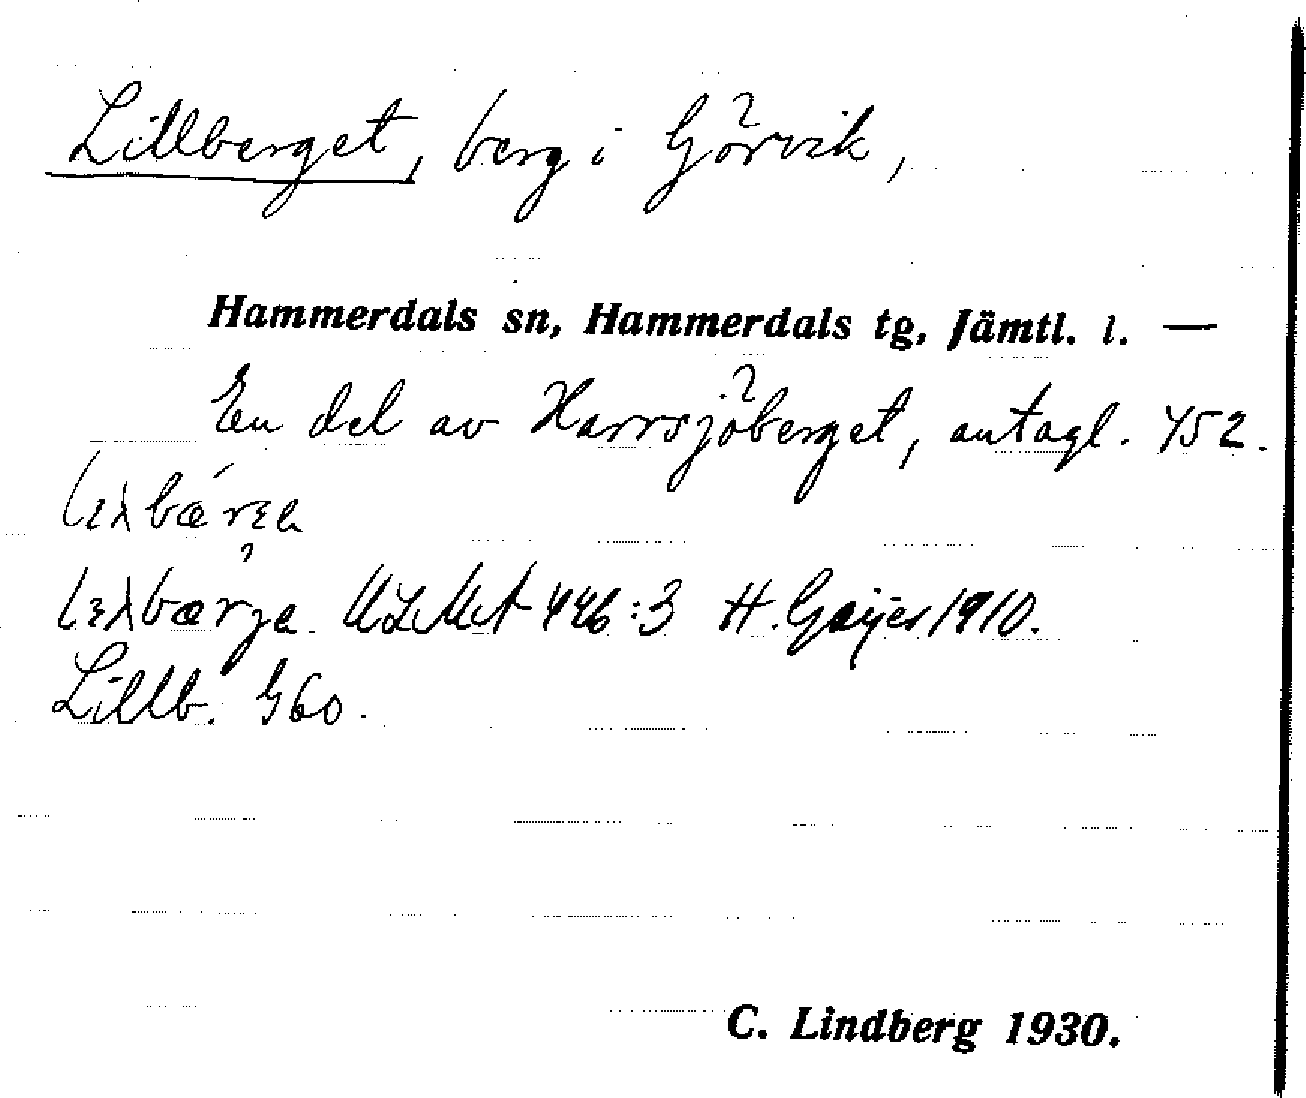 Lillberget, berg i Görvik,
Hammerdals sn, Hammerdals tg, Jämtl. l. —
En del av Harrsjöberget, antagl. 452.
ULMA 446:3 H. Geijer 1910.
Lillb. G60.
C. Lindberg 1930.